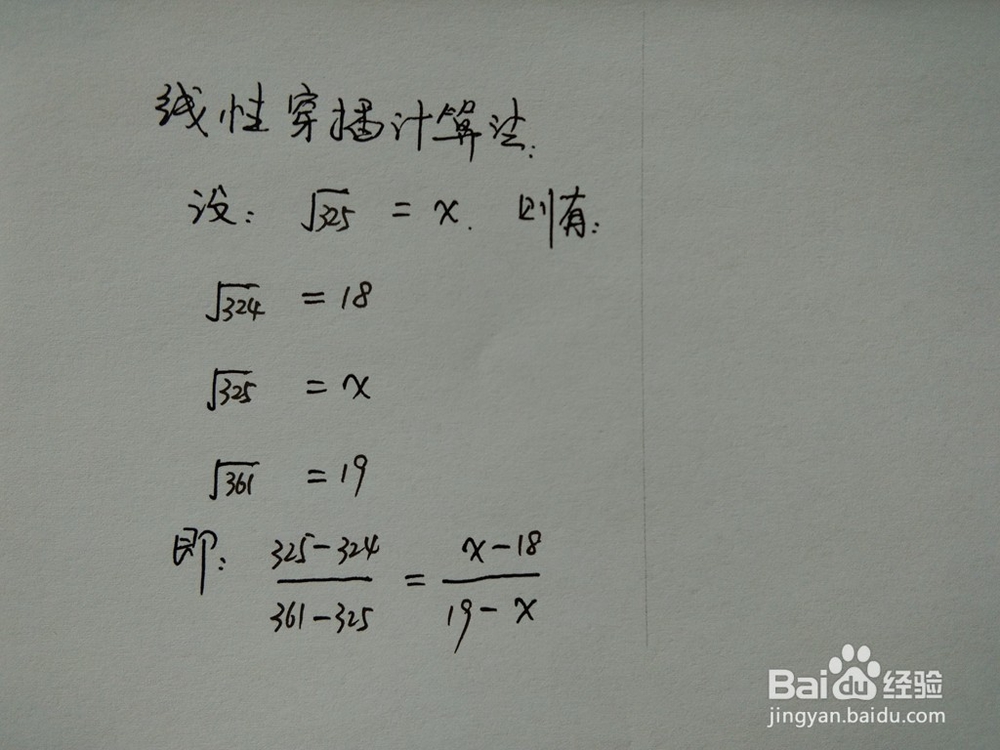 线性穿插计算法:
设: √325 = x. 则有:
√324 = 18
√325 = x
√361 = 19
即: (325-324)/(361-325) = (x-18)/(19-x)
Baidu经验
jingyan.baidu.com